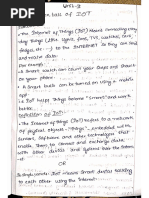 Unit-II
ion ball of IOT
- The Internet of Things (IoT) Means connecting every
day things (like lights, fans, TVs, watches, cars,
fridges, etc..) to the INTERNET so they can send
and
- A Smart watch can count your steps and share
to your phone
- A Smart bulb can be turned on using a mobile
app
IoT helps things become "Smart" and work
better.
Definition of IoT:
- The Internet of Things (IoT) refers to a network
of physical objects - "Things" - embedded with
Sensors, software, and other technologies that
allow them to connect and exchange data
with other devices and systems over the
OR
In Simple words: IoT means Smart devices talking
to each other using the Internet.